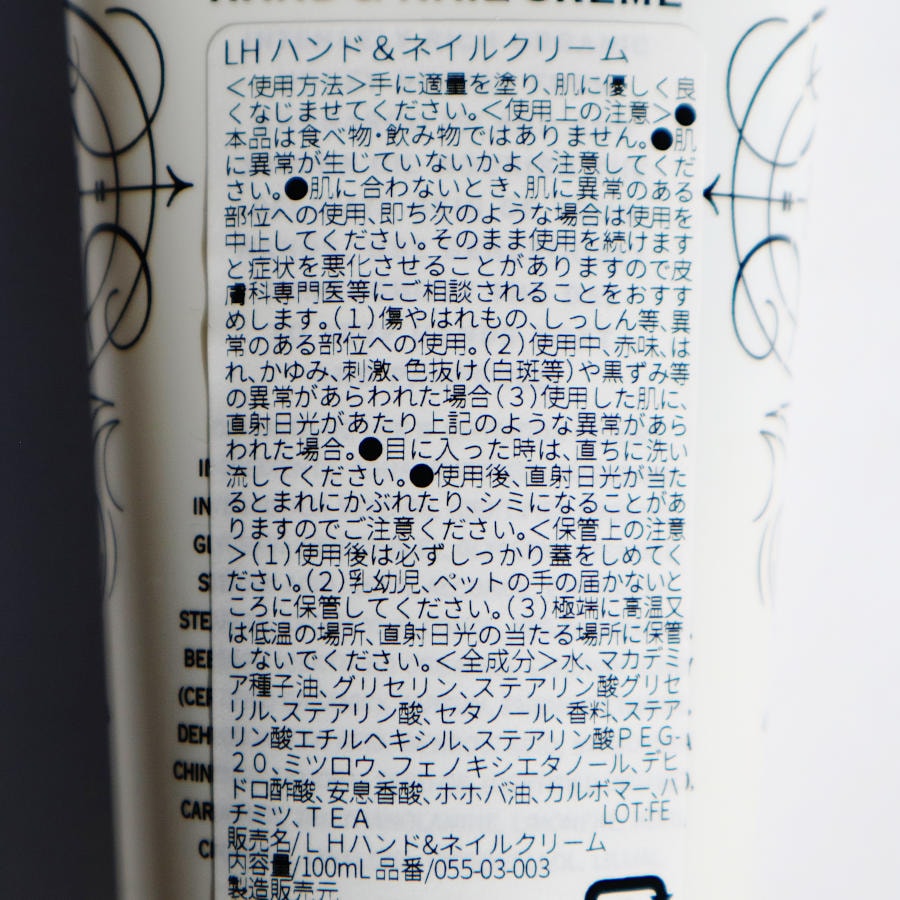 HAND & NAIL CREME
LH ハンド＆ネイルクリーム
＜使用方法＞手に適量を塗り、肌に優しく良
くなじませてください。＜使用上の注意＞●
本品は食べ物・飲み物ではありません。●肌
に異常が生じていないかよく注意してくだ
さい。●肌に合わないとき、肌に異常のある
部位への使用、即ち次のような場合は使用を
中止してください。そのまま使用を続けます
と症状を悪化させることがありますので皮
膚科専門医等にご相談されることをおすす
めします。（1）傷やはれもの、しっしん等、異
常のある部位への使用。（2）使用中、赤味、は
れ、かゆみ、刺激、色抜け（白斑等）や黒ずみ等
の異常があらわれた場合（3）使用した肌に、
直射日光があたり上記のような異常があら
われた場合。●目に入った時は、直ちに洗い
流してください。●使用後、直射日光が当た
るとまれにかぶれたり、シミになることがあ
りますのでご注意ください。＜保管上の注意
＞（1）使用後は必ずしっかり蓋をしめてく
ださい。（2）乳幼児、ペットの手の届かないと
ころに保管してください。（3）極端に高温又
は低温の場所、直射日光の当たる場所に保管
しないでください。＜全成分＞水、マカデミ
ア種子油、グリセリン、ステアリン酸グリセ
リル、ステアリン酸、セタノール、香料、ステア
リン酸エチルヘキシル、ステアリン酸ＰＥＧ-
２０、ミツロウ、フェノキシエタノール、デヒ
ドロ酢酸、安息香酸、ホホバ油、カルボマー、ハ
チミツ、ＴＥＡ LOT:FE
販売名/ＬＨハンド&ネイルクリーム
内容量/100mL 品番/055-03-003
製造販売元
IN
GL
S
STEA
BEE
(CER
DEH
CHIN
CAR